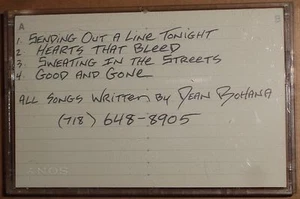 A
1. SENDING OUT A LINE TONIGHT
2. HEARTS THAT BLEED
3. SWEATING IN THE STREETS
4. GOOD AND GONE
ALL SONGS WRITTEN BY DEAN BOHANA
(718) 648-8905
SONY